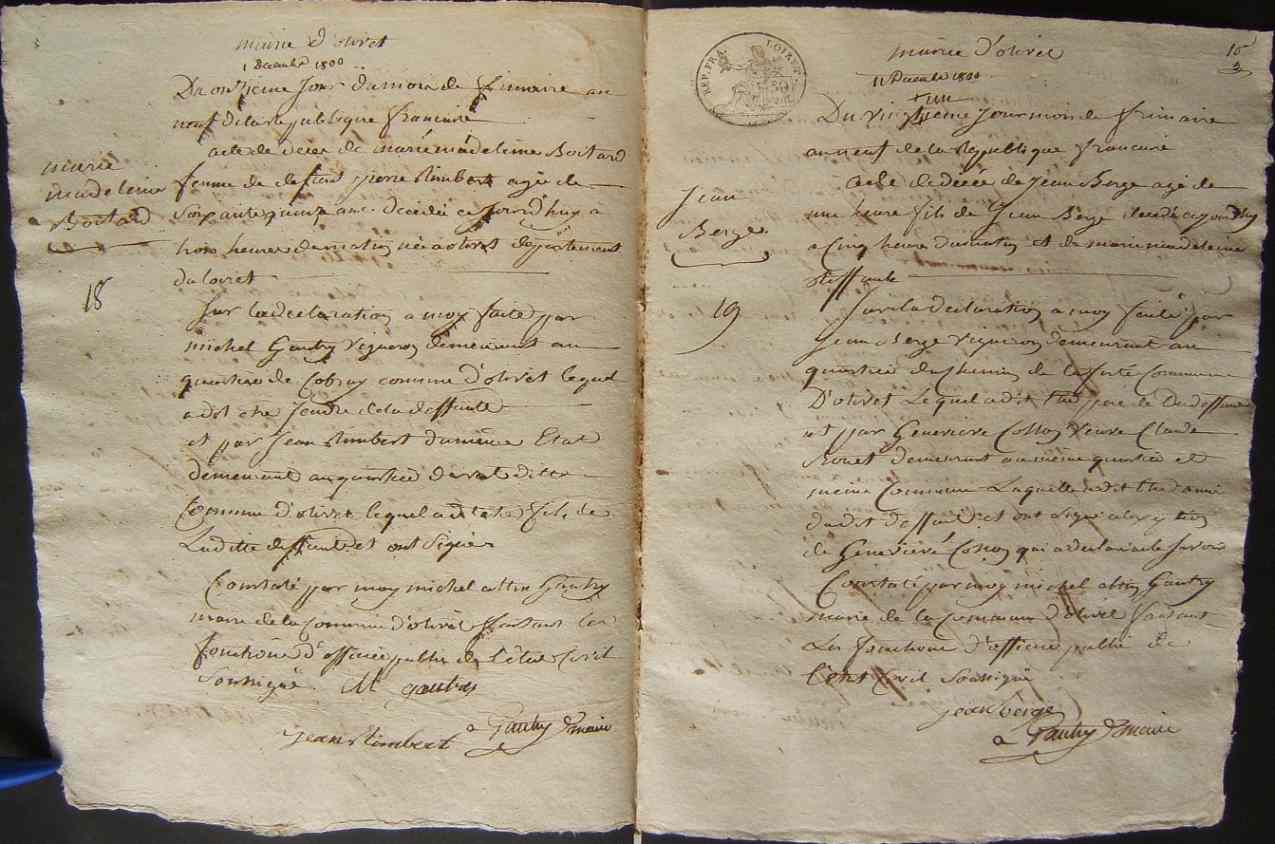 mairie d'olivet
1 Decembre 1800
Du onzieme Jour du mois de frimaire an
neuf de la republique francaise
acte de deces de marie madeleine Boitard
marie
madeleine
Boitard
femme de deffunt pierre Rimbert agée de
soixante quinze ans decedée ce jourd'huy a
trois heures du matin née a olivet departement
du loiret
18
Sur la declaration a moy faite par
michel Gautry vigneron demeurant au
quartier de Cobray commune d'olivet lequel
a dit etre gendre de la deffunte
et par Jean Rimbert du même Etat
demeurant au quartier du ditte
Commune d'olivet lequel a dit etre fils de
Laditte deffunte et ont signé
Constaté par moy michel Gautry
maire de la Commune d'olivet faisant les
fonctions d'officier public de l'état Civil
Soussigné M gautry
Jean Rimbert
a Gautry maire
mairie d'olivet
11 Decembre 1800
REP. FRA. LOIRET.
10
Du vingtieme Jour mois de frimaire
un
an neuf de la Republique francaise
Jean
Berge
19
acte de décés de Jean Berge agé de
une heure fils de Jean Berge decedé cejourd'huy
a Cinq heure du matin et de marie madeleine
Sur la declaration a moy faite par
Jean Berge vigneron demeurant au
quartier du Chemin de la ferté Commune
D'olivet Lequel a dit etre pere de Dudeffunt
et par Genevieve Cosson veuve Claude
Rouet demeurant au même quartier et
meme Commune Laquelle a dit etre amie
dudit deffunt et ont signé
de Genevieve Cosson qui a declaré ne le savoir
Constaté par moy michel Gautry
maire de la Commune d'olivet faisant
Les fonctions d'officier public de
l'état Civil Soussigné
jean berge
a Gautry maire